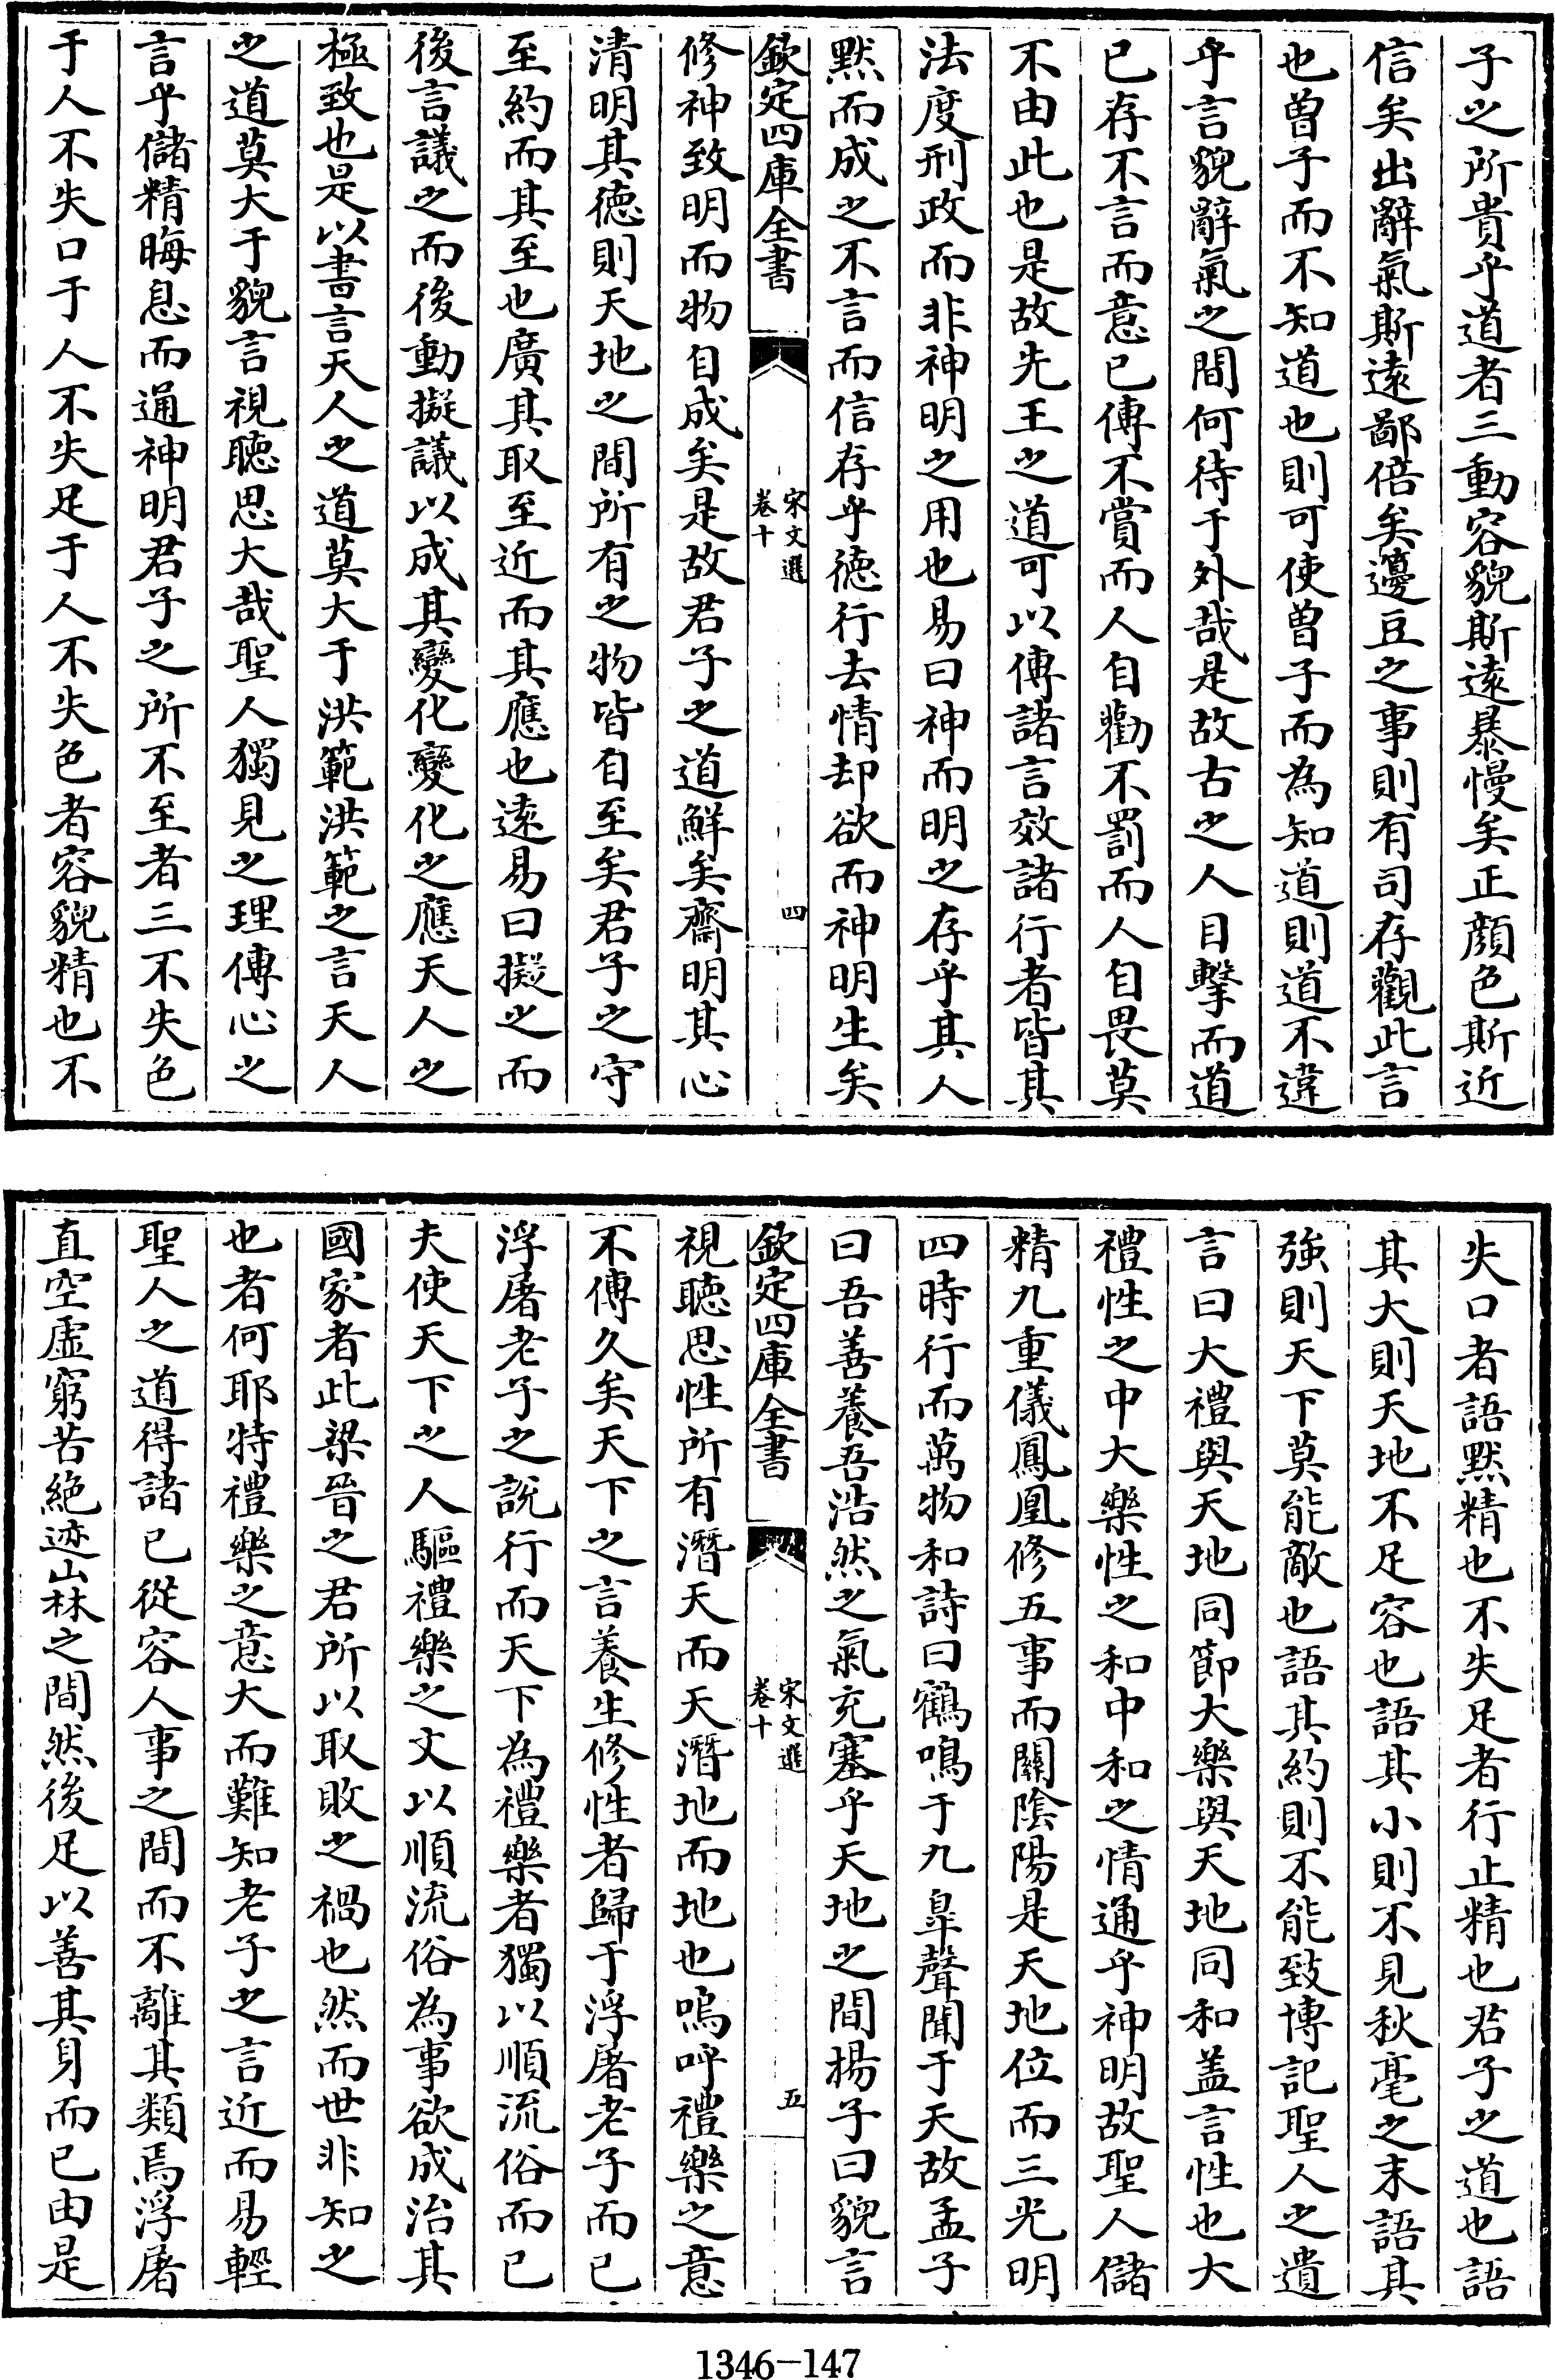 子之所貴乎道者三動容貌斯遠暴慢矣正顔色斯近
信矣出辭氣斯遠鄙倍矣籩豆之事則有司存觀此言
也曽子而不知道也則可使曽子而為知道則道不違
乎言貌辭氣之間何待于外哉是故古之人目擊而道
已存不言而意已傳不賞而人自勸不罰而人自畏莫
不由此也是故先王之道可以傳諸言效諸行者皆其
法度刑政而非神明之用也易曰神而明之存乎其人
黙而成之不言而信存乎徳行去情却欲而神明生矣
欽定四庫全書
宋文選
卷十
四
修神致明而物自成矣是故君子之道鮮矣齋明其心
清明其徳則天地之間所有之物皆自至矣君子之守
至約而其至也廣其取至近而其應也遠易曰擬之而
後言議之而後動擬議以成其變化變化之應天人之
極致也是以書言天人之道莫大于洪範洪範之言天人
之道莫大于貌言視聽思大哉聖人獨見之理傳心之
言乎儲精晦息而通神明君子之所不至者三不失色
于人不失口于人不失足于人不失色者容貌精也不
失口者語黙精也不失足者行止精也君子之道也語
其大則天地不足容也語其小則不見秋毫之末語其
強則天下莫能敵也語其約則不能致博記聖人之遺
言曰大禮與天地同節大樂與天地同和盖言性也大
禮性之中大樂性之和中和之情通乎神明故聖人儲
精九重儀鳳凰修五事而關陰陽是天地位而三光明
四時行而萬物和詩曰鶴鳴于九臯聲聞于天故孟子
曰吾善養吾浩然之氣充塞乎天地之間揚子曰貌言
欽定四庫全書
宋文選
卷十
五
視聽思性所有潛天而天潛地而地也嗚呼禮樂之意
不傳久矣天下之言養生修性者歸于浮屠老子而已
浮屠老子之說行而天下為禮樂者獨以順流俗而已
夫使天下之人驅禮樂之文以順流俗為事欲成治其
國家者此梁晉之君所以取敗之禍也然而世非知之
也者何耶特禮樂之意大而難知老子之言近而易輕
聖人之道得諸已從容人事之間而不離其類焉浮屠
直空虛窮苦絶迹山林之間然後足以善其身而已由是
1346-147